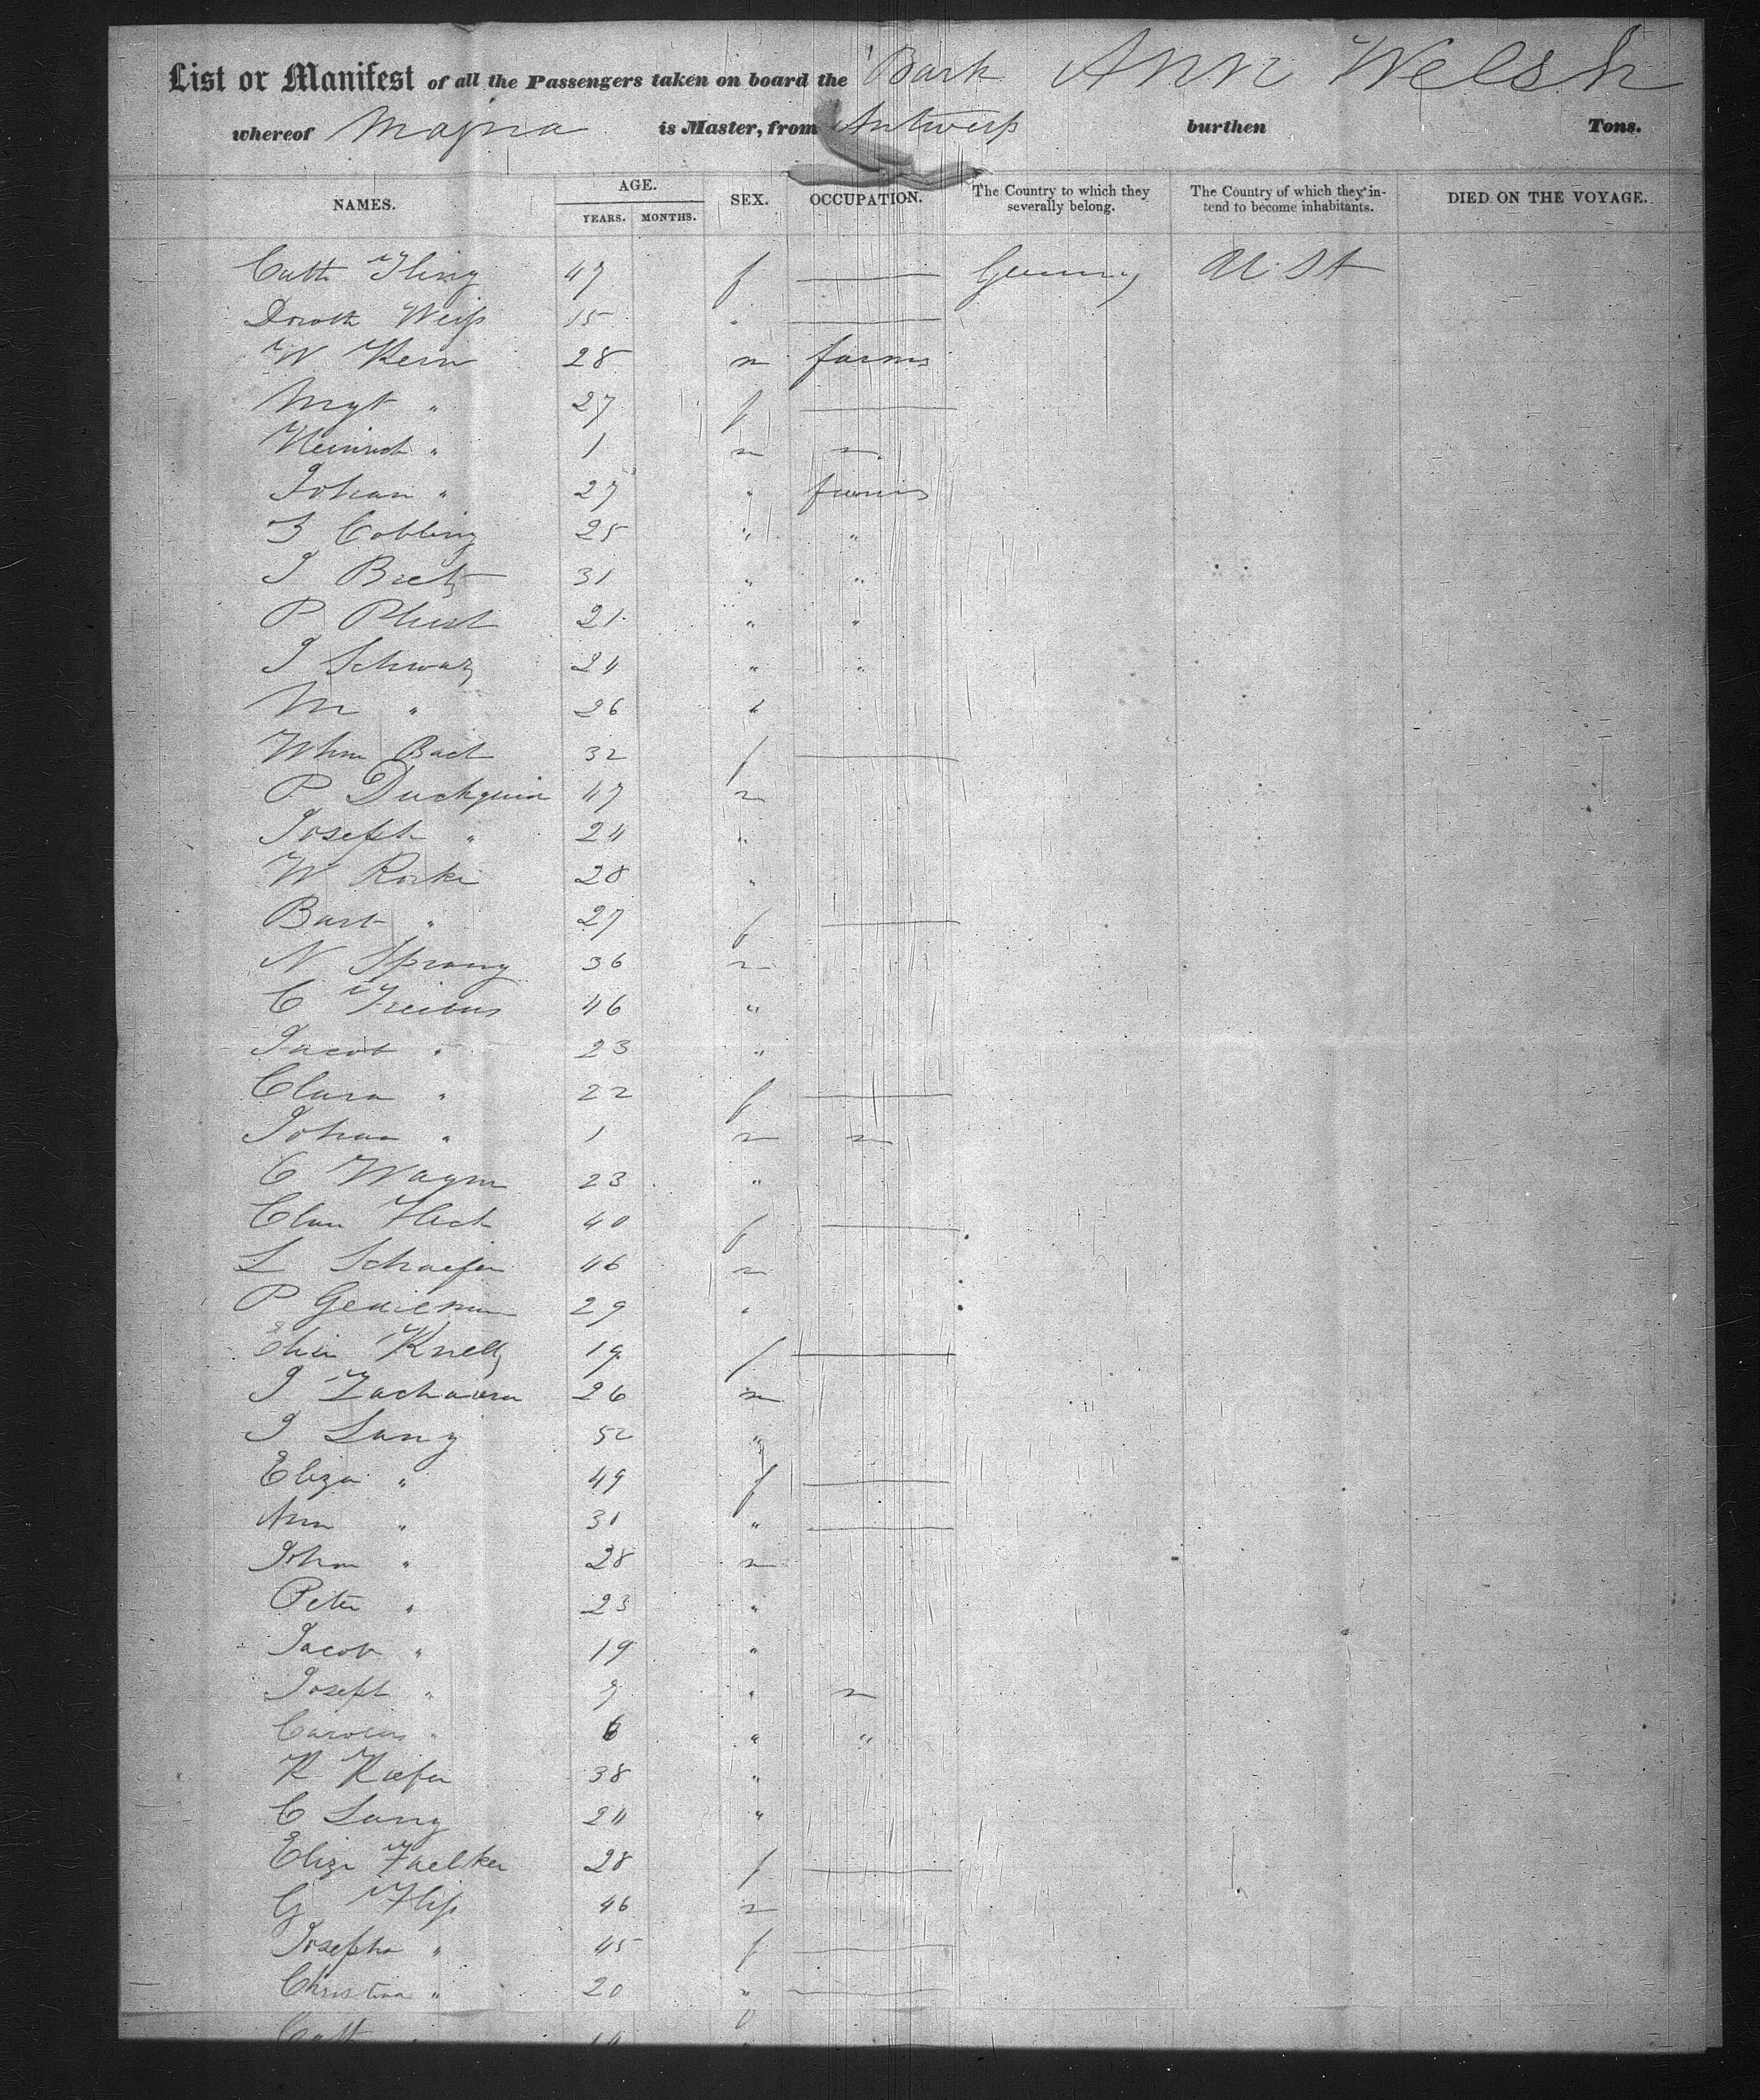 List or Manifest of all the Passengers taken on board the Bark Ann Welsh
whereof Majna is Master, from Antwerp burthen Tons.
NAMES. AGE. YEARS. MONTHS. SEX. OCCUPATION. The Country to which they severally belong. The Country of which they intend to become inhabitants. DIED ON THE VOYAGE.
Cath Iling 47 f — Germy U. St
Doroth Weiss 15 " —
W Kern 28 m farms
Mgt " 27 f —
Heinrich " 1 m
Johan " 27 " farms
Cobling 25 " "
J Bretz 31 " "
P 21 " "
J Schwarz 24 " "
M " 26 "
Whm Bach 32 f —
P Duchguin 47 m
Joseph " 24 "
W Roske 28 "
Barb " 27 f —
N Sprang 36 m
C 46 "
Jacob " 23 "
Clara " 22 f —
Johan " 1 m
C Wagnr 23 "
Clara Fleck 40 f —
L Schaefer 46 m
P 29 "
Knelz 19 f —
J 26 m
J Lang 52 "
Eliza " 49 f —
Ann " 31 " —
Johan " 28 m
Peter " 23 "
Jacob " 19 "
Joseph " 9 "
6 " "
K Kiefer 38 "
C Lang 24 "
Eliza Faelker 28 f —
G 46 m
Josepha " 45 f —
Christina " 20 " —
Cath "